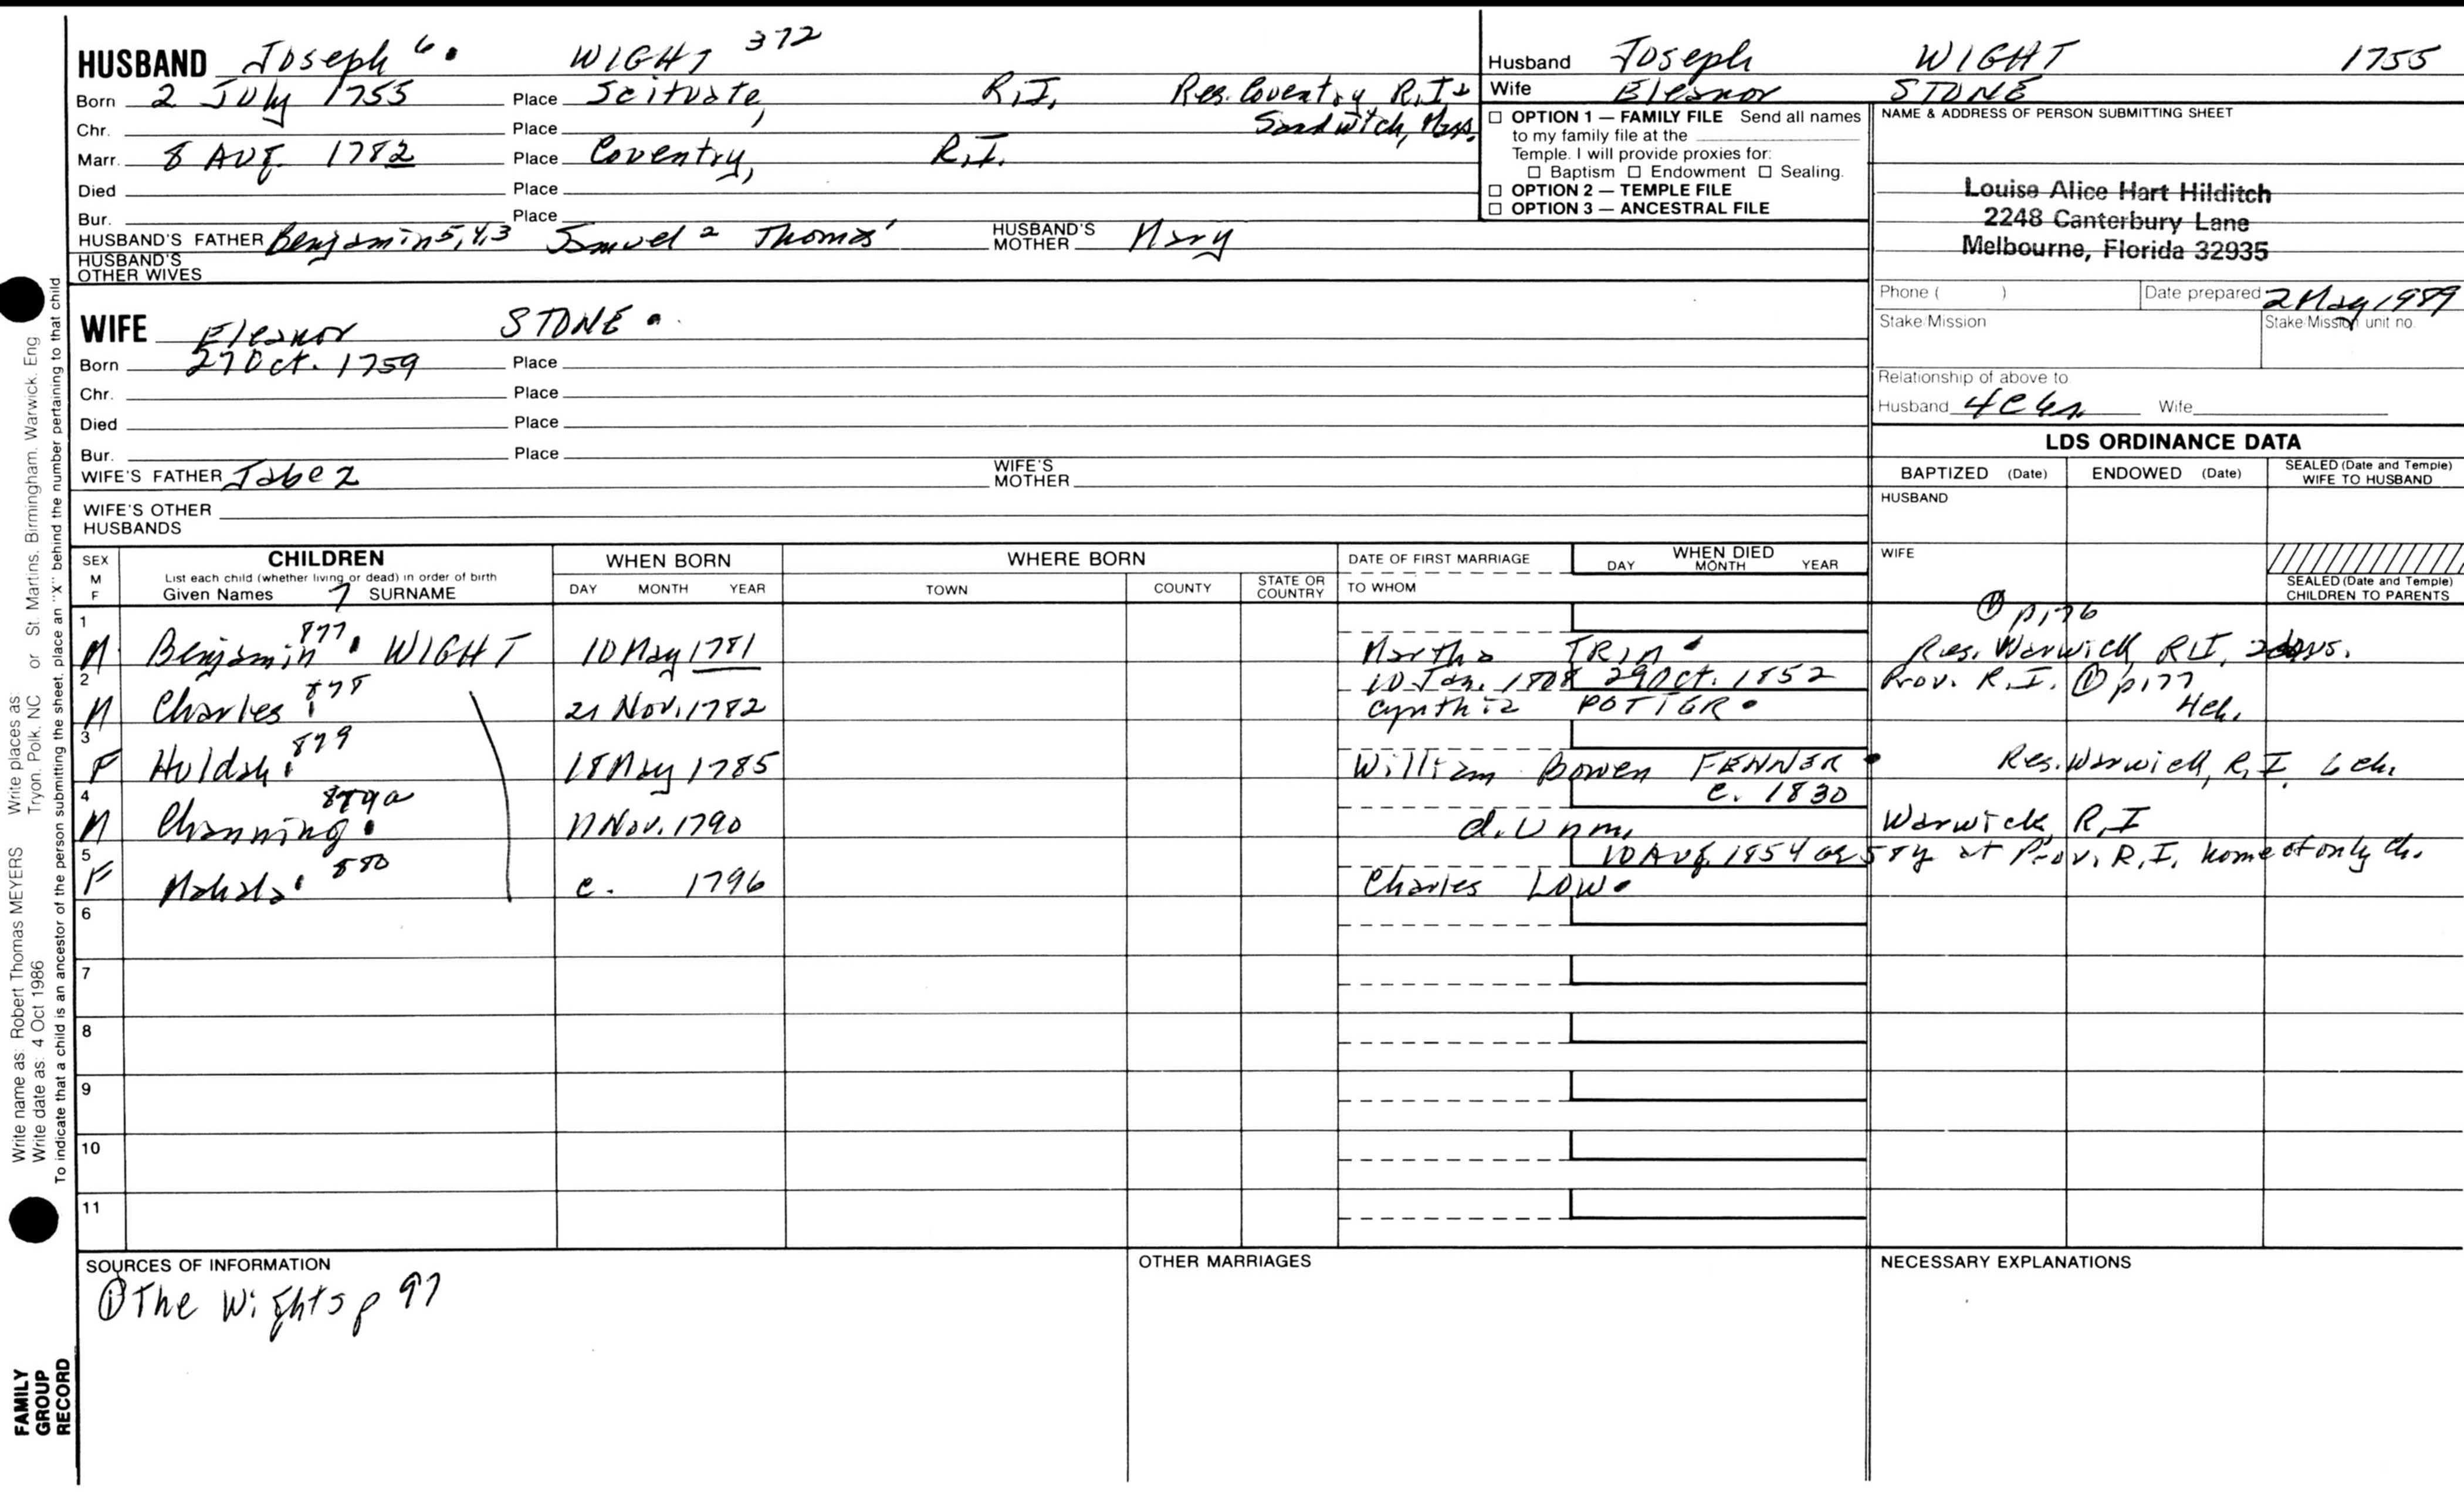 HUSBAND Joseph 6. WIGHT 372
Born 2 July 1755 Place Scituate, R.I. Res. Coventry R.I. &
Chr. Place Sandwich, Mass.
Marr. 8 Aug. 1782 Place Coventry, R.I.
Died Place
Bur. Place
HUSBAND'S FATHER Benjamin 5,4,3 Samuel 2 Thomas 1 HUSBAND'S MOTHER Mary
HUSBAND'S OTHER WIVES
Husband Joseph WIGHT 1755
Wife Eleanor STONE
☐ OPTION 1 — FAMILY FILE Send all names
to my family file at the
Temple. I will provide proxies for:
☐ Baptism ☐ Endowment ☐ Sealing.
☐ OPTION 2 — TEMPLE FILE
☐ OPTION 3 — ANCESTRAL FILE
NAME & ADDRESS OF PERSON SUBMITTING SHEET
Louise Alice Hart Hilditch
2248 Canterbury Lane
Melbourne, Florida 32935
Phone ( ) Date prepared 2 May 1989
Stake/Mission Stake/Mission unit no.
Relationship of above to
Husband Wife
WIFE Eleanor STONE
Born 27 Oct. 1759 Place
Chr. Place
Died Place
Bur. Place
WIFE'S FATHER Jabez WIFE'S MOTHER
WIFE'S OTHER
HUSBANDS
LDS ORDINANCE DATA
BAPTIZED (Date) ENDOWED (Date) SEALED (Date and Temple) WIFE TO HUSBAND
HUSBAND
WIFE
SEALED (Date and Temple) CHILDREN TO PARENTS
SEX M F CHILDREN WHEN BORN WHERE BORN DATE OF FIRST MARRIAGE WHEN DIED
List each child (whether living or dead) in order of birth
Given Names 7 SURNAME DAY MONTH YEAR TOWN COUNTY STATE OR COUNTRY TO WHOM DAY MONTH YEAR
1 ① p.176
M Benjamin 877 WIGHT 10 May 1781 Martha Res. Warwick R.I.
2 10 Jan. 1808 29 Oct. 1852 Prov. R.I. ① p177
M Charles 878 21 Nov. 1782 Cynthia POTTER 4ch.
3
F Huldah 879 18 May 1785 William Bowen FENNER Res. Warwick, R.I. 6 ch.
4 c. 1830
M Channing 879a 11 Nov. 1790 d. Unm. Warwick, R.I.
5 10 Aug. 1854 ae 58y at Prov. R.I. home of only ch.
F Mahala 880 c. 1796 Charles LOW
6
7
8
9
10
11
SOURCES OF INFORMATION OTHER MARRIAGES NECESSARY EXPLANATIONS
① The Wights p 97
Write name as: Robert Thomas MEYERS Write places as: Tryon, Polk, NC or St. Martins, Birmingham, Warwick, Eng
Write date as: 4 Oct 1986
To indicate that a child is an ancestor of the person submitting the sheet, place an "X" behind the number pertaining to that child
FAMILY
GROUP
RECORD